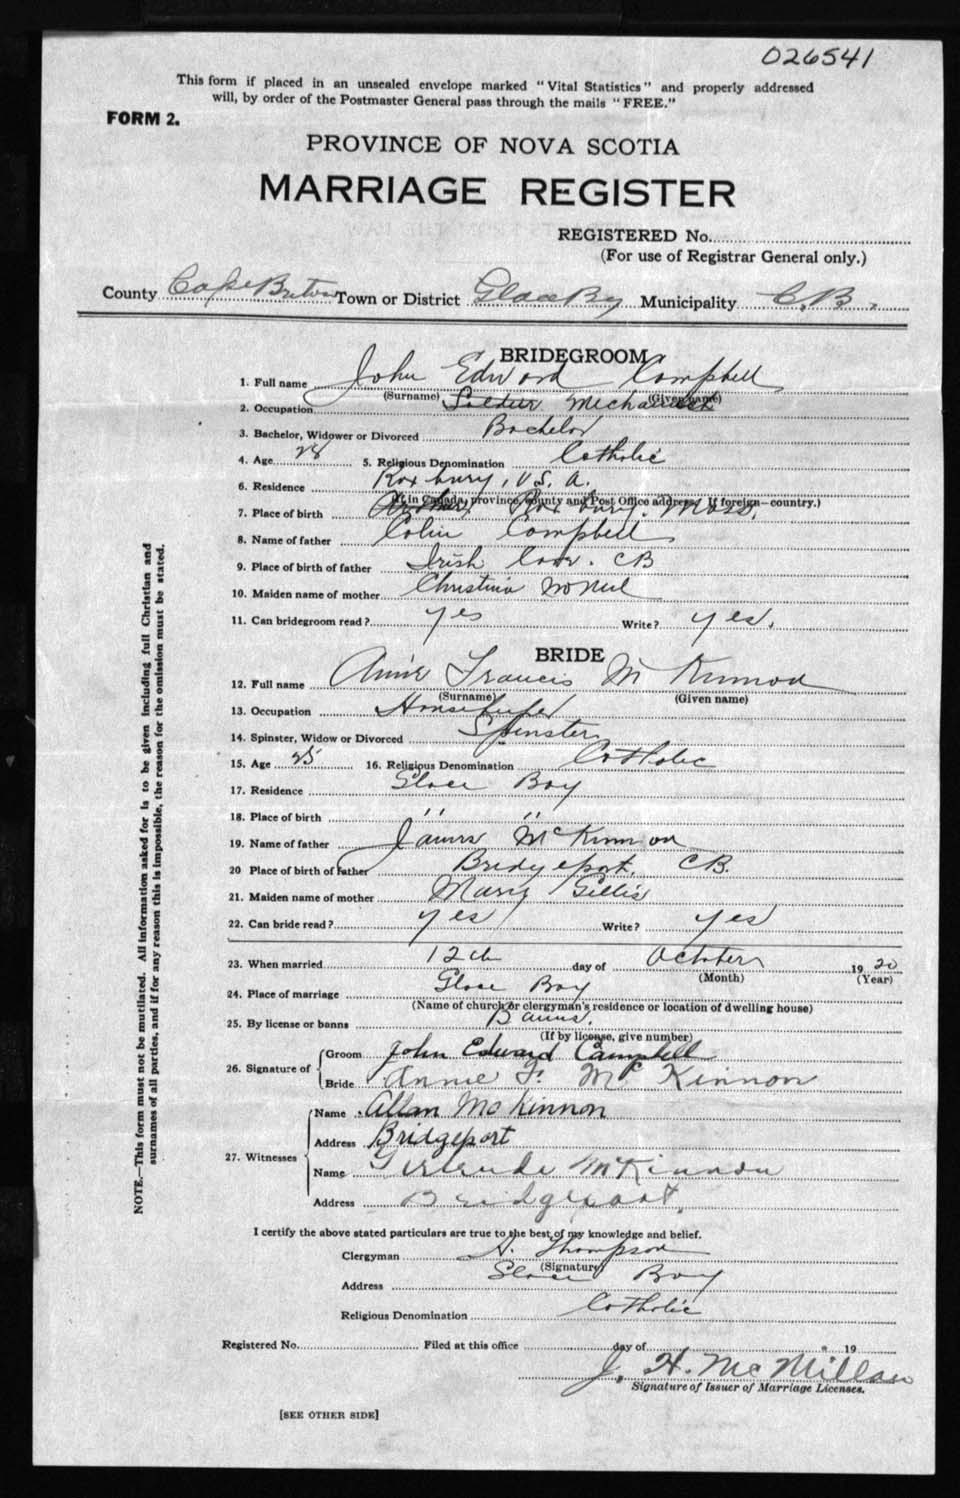 026541
This form if placed in an unsealed envelope marked "Vital Statistics" and properly addressed
will, by order of the Postmaster General pass through the mails "FREE."
FORM 2.
PROVINCE OF NOVA SCOTIA
MARRIAGE REGISTER
REGISTERED No.
(For use of Registrar General only.)
County Cape Breton Town or District Glace Bay Municipality C.B.
BRIDEGROOM
1. Full name John Edward Campbell
(Surname) (Given name)
2. Occupation Mechanick
3. Bachelor, Widower or Divorced Bachelor
4. Age 28 5. Religious Denomination Catholic
6. Residence Roxbury, U.S.A.
(If in Canada, province, county and Post Office address. If foreign—country.)
7. Place of birth Roxbury. Mass.
8. Name of father Colin Campbell
9. Place of birth of father Irish Cove. CB
10. Maiden name of mother Christina McNeil
11. Can bridegroom read? yes Write? yes.
BRIDE
12. Full name Annie Francis McKinnon
(Surname) (Given name)
13. Occupation Housekeeper
14. Spinster, Widow or Divorced Spinster
15. Age 25 16. Religious Denomination Catholic
17. Residence Glace Bay
18. Place of birth " "
19. Name of father James McKinnon
20 Place of birth of father Bridgeport, CB.
21. Maiden name of mother Mary Gillis
22. Can bride read? yes Write? yes
23. When married 12th day of October 1920
(Month) (Year)
24. Place of marriage Glace Bay
(Name of church or clergyman's residence or location of dwelling house)
25. By license or banns Banns.
(If by license, give number)
26. Signature of Groom John Edward Campbell
Bride Annie F. McKinnon
27. Witnesses Name Allan McKinnon
Address Bridgeport
Name Gertrude McKinnon
Address Bridgeport.
I certify the above stated particulars are true to the best of my knowledge and belief.
Clergyman A. Thompson
(Signature)
Address Glace Bay
Religious Denomination Catholic
Registered No. Filed at this office day of 19
J. H. McMillan
Signature of Issuer of Marriage Licenses.
[SEE OTHER SIDE]
NOTE.—This form must not be mutilated. All information asked for is to be given including full Christian and
surnames of all parties, and if for any reason this is impossible, the reason for the omission must be stated.